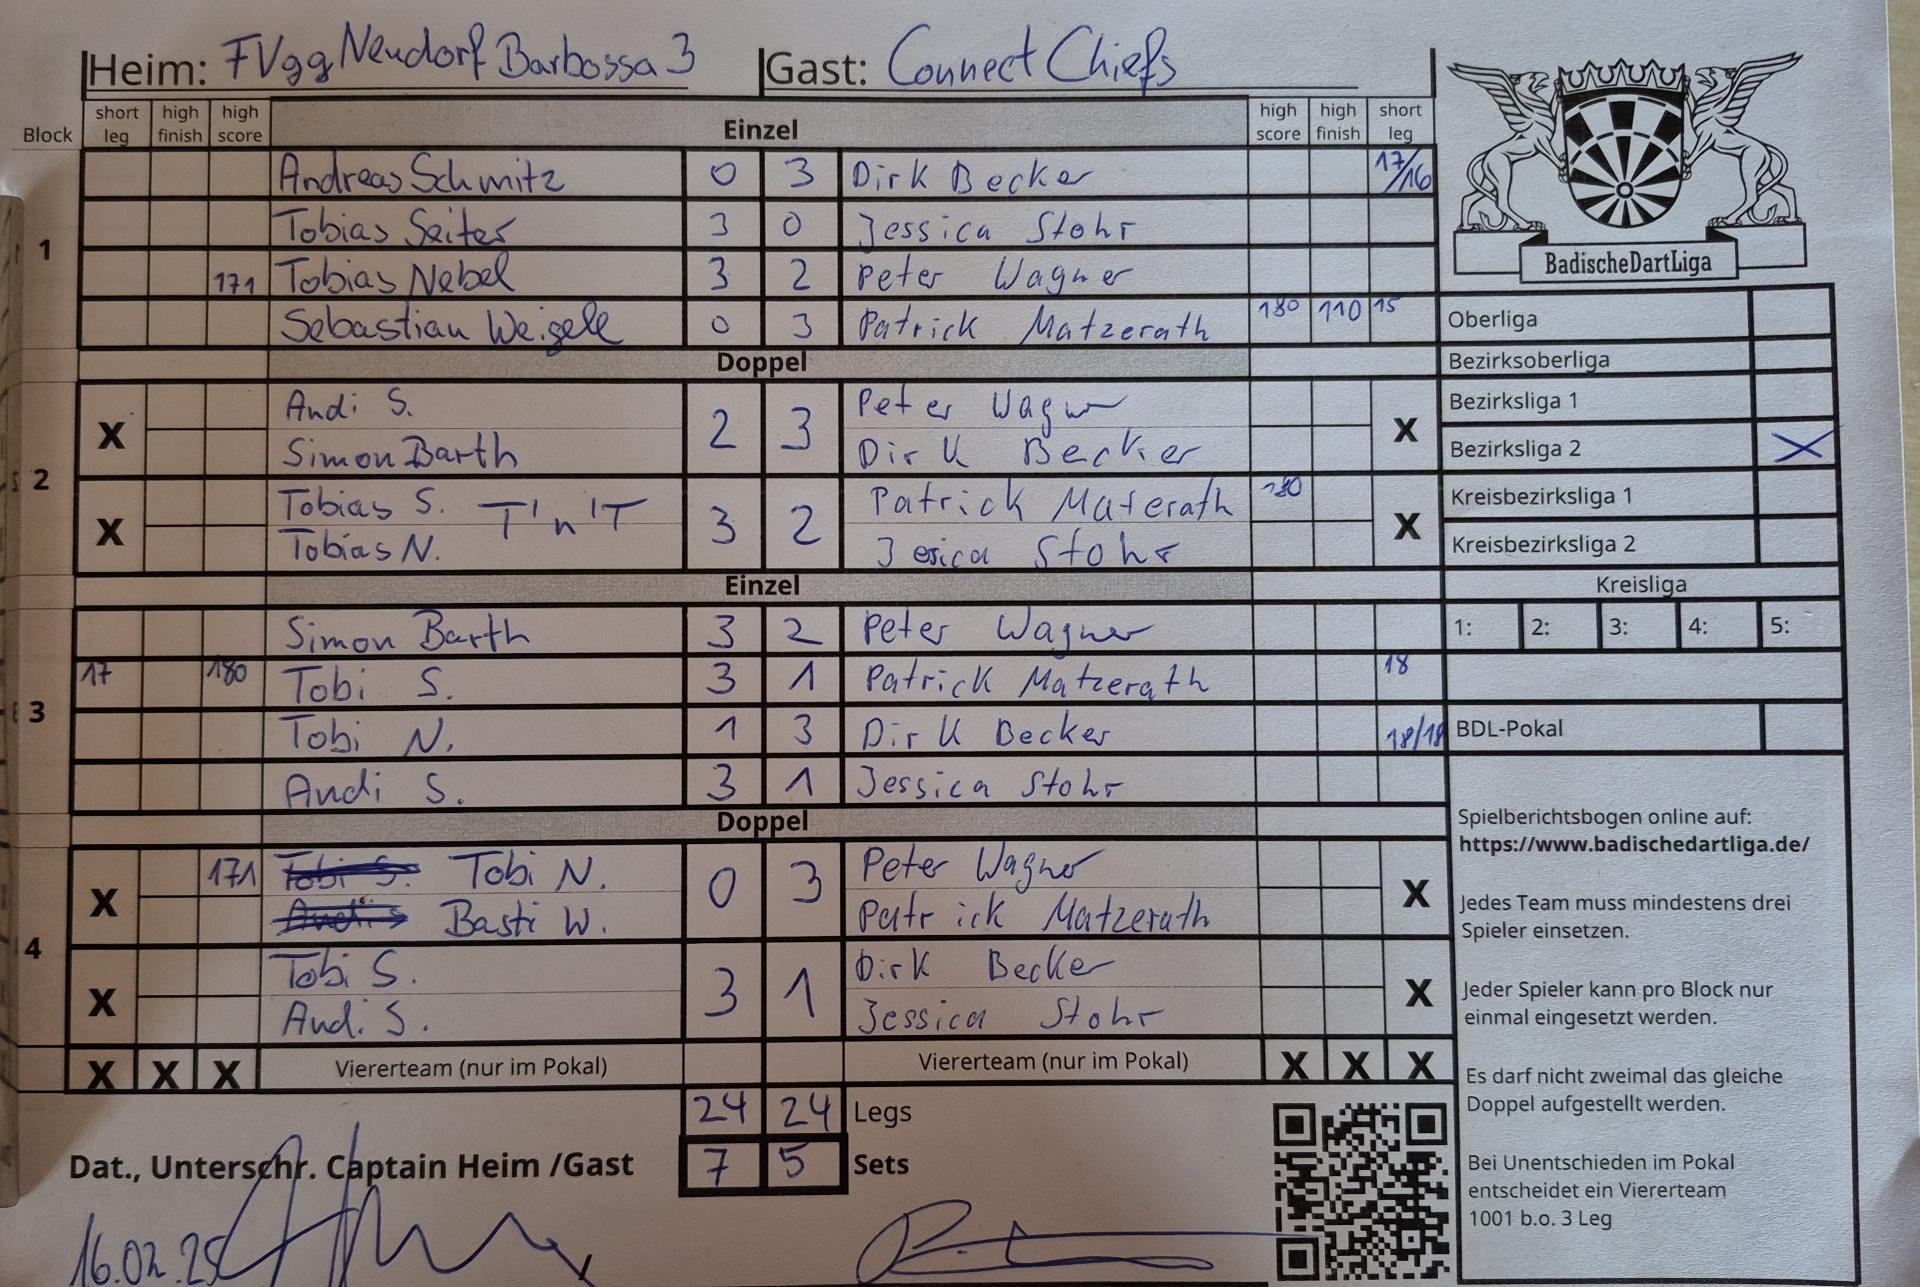 Heim: FVgg Neudorf Barbossa 3 Gast: Connect Chiefs
Block short leg high finish high score Einzel high score high finish short leg
1
Andreas Schmitz 0 3 Dirk Becker 17/16
Tobias Seiter 3 0 Jessica Stohr
171 Tobias Nebel 3 2 Peter Wagner
Sebastian Weigele 0 3 Patrick Matzerath 180 110 15
Doppel
2
X Andi S. 2 3 Peter Wagner X
Simon Barth Dirk Becker
X Tobias S. T'n'T 3 2 Patrick Materath 180 X
Tobias N. Jesica Stohr
Einzel
3
Simon Barth 3 2 Peter Wagner
17 180 Tobi S. 3 1 Patrick Matzerath 18
Tobi N. 1 3 Dirk Becker 18/18
Andi S. 3 1 Jessica Stohr
Doppel
4
X 171 Tobi S. Tobi N. 0 3 Peter Wagner X
Andi S Basti W. Patrick Matzerath
X Tobi S. 3 1 Dirk Becker X
Andi S. Jessica Stohr
X X X Viererteam (nur im Pokal) Viererteam (nur im Pokal) X X X
24 24 Legs
Dat., Unterschr. Captain Heim /Gast 7 5 Sets
16.02.25
BadischeDartLiga
Oberliga
Bezirksoberliga
Bezirksliga 1
Bezirksliga 2 X
Kreisbezirksliga 1
Kreisbezirksliga 2
Kreisliga
1: 2: 3: 4: 5:
BDL-Pokal
Spielberichtsbogen online auf:
https://www.badischedartliga.de/
Jedes Team muss mindestens drei
Spieler einsetzen.
Jeder Spieler kann pro Block nur
einmal eingesetzt werden.
Es darf nicht zweimal das gleiche
Doppel aufgestellt werden.
Bei Unentschieden im Pokal
entscheidet ein Viererteam
1001 b.o. 3 Leg